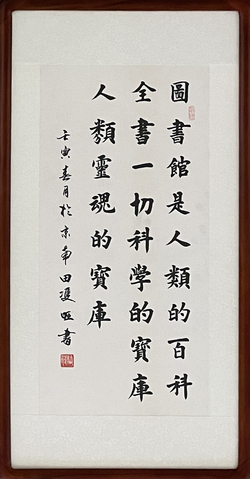 圖書館是人類的百科
全書一切科學的寶庫
人類靈魂的寶庫
壬寅月於京南田旺書